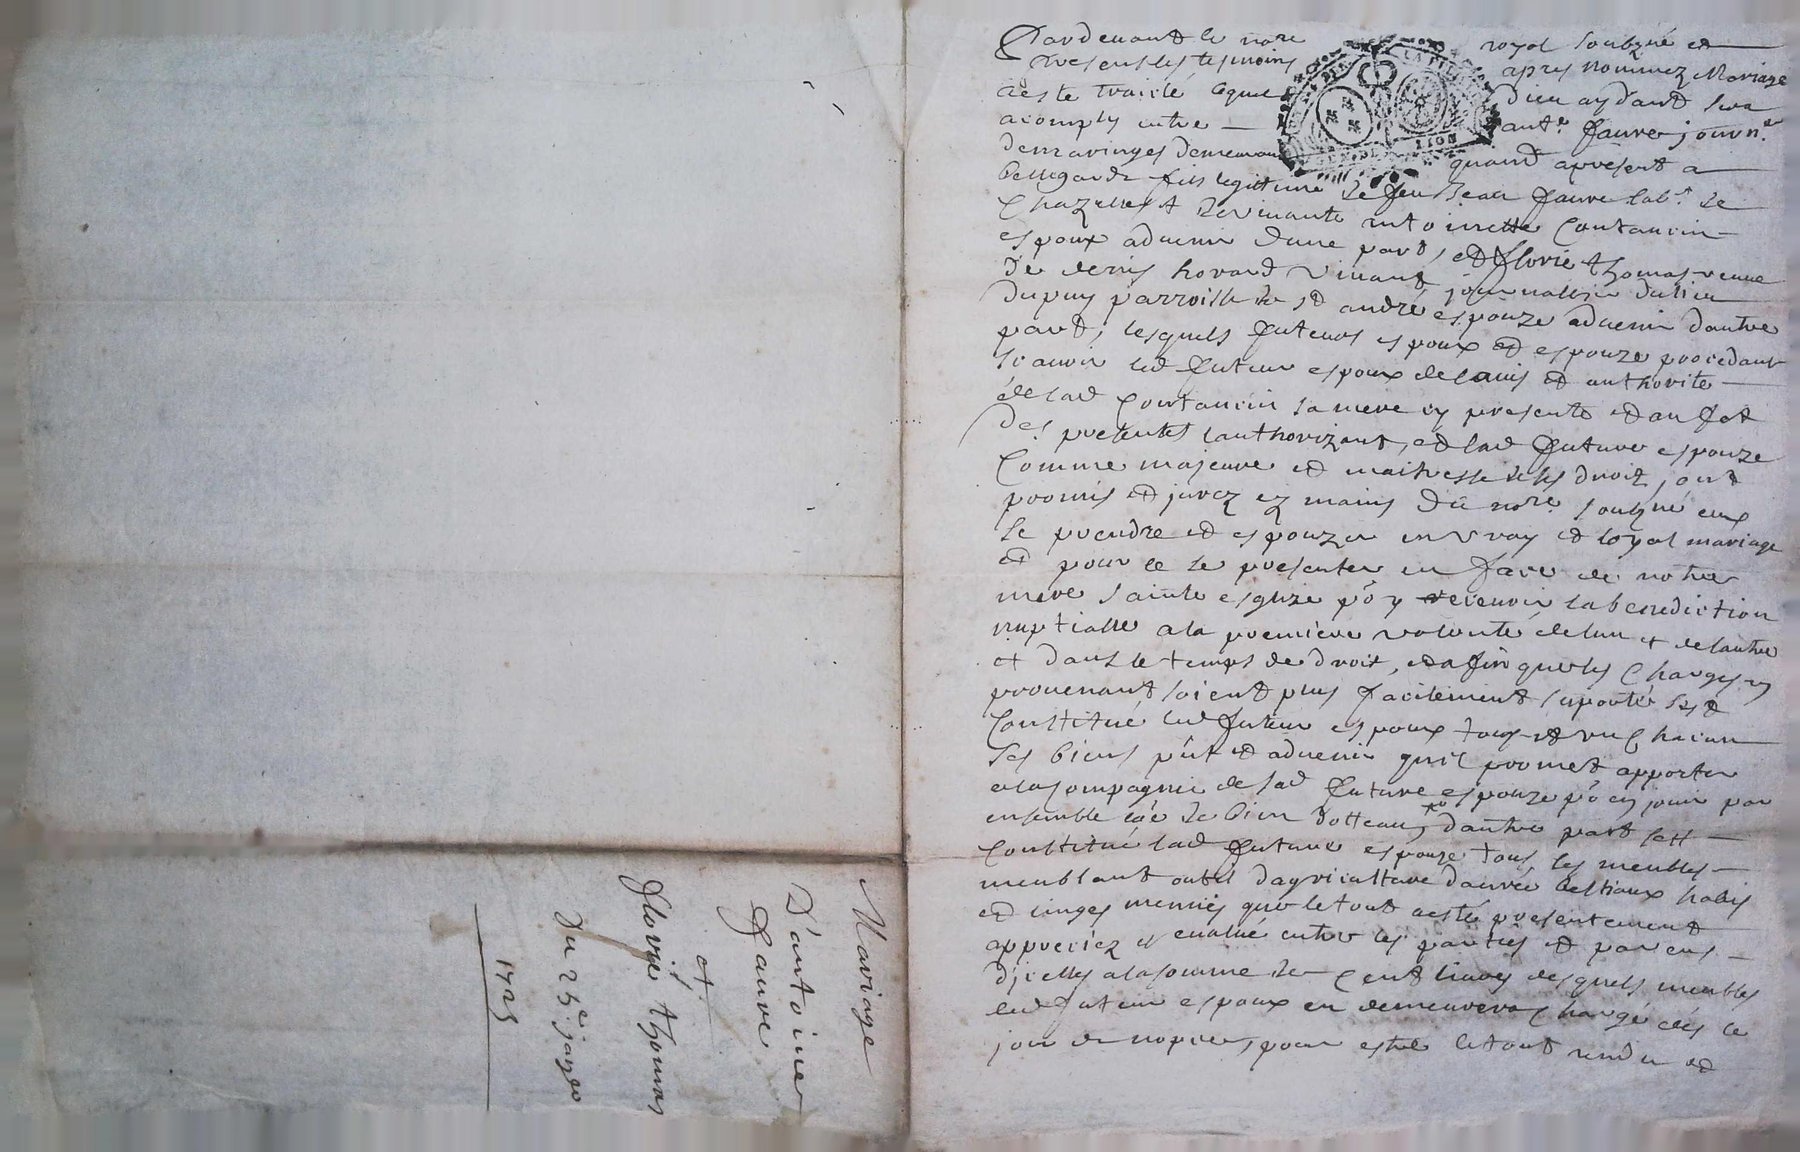 Mariage
D'antoine
Faure
et
Florie thomas
Du 25e janer
1725
Pardevant le nore royal soubzné et
presens les tesmoins apres nommez Mariage
a este traicté lequel Dieu aydant sera
acomply entre antne faure journer
demaringes demeurant quand apresent a
bellegarde fils legitime de feu Jean faure labr de
Chazelles et de vivante antoinette Contancin
espoux advenir dune part, et Florie thomas veuve
de denis horard vivant journallier du lieu
du puy parroisse de st andré espouze advenir dautre
part, lesquels futeurs espoux et espouze procedant
scavoir led futeur espoux de lavis et authorité
de lad Contancin sa mere cy presente et au fet
des presentes lauthorizant, et lad future espouze
Comme majeure et maitresse de ses droit, sont
promis et jurez ez mains du nore soubzné eux
se prendre et espouzer en vray et loyal mariage
et pour ce se presenter en face de notre
mere sainte esglize pō y recevoir la benediction
nuptialle a la premiere volonté de lun et de lautre
et dans le temps de droit, et afin que les Charges en
provenant soient plus facilement suporté sest
Constitué led futeur espoux tous et un chacun
ses biens pnt et advenir quil promet apporter
a la compagnie de lad future espouze pō en jouir par
ensemble de bien dottaux, dautre part sest
Constitué lad future espouze tous les meubles
meublant outil dagriculture danrée bestiaux habis
et linges menues que le tout a esté presentement
appreciez et evalué entre les parties et parens
dicelles a la somme de Cent livres desquels meubles
led futeur espoux en demeurera Chargé des le
jour de nopces, pour estre le tout rendu et